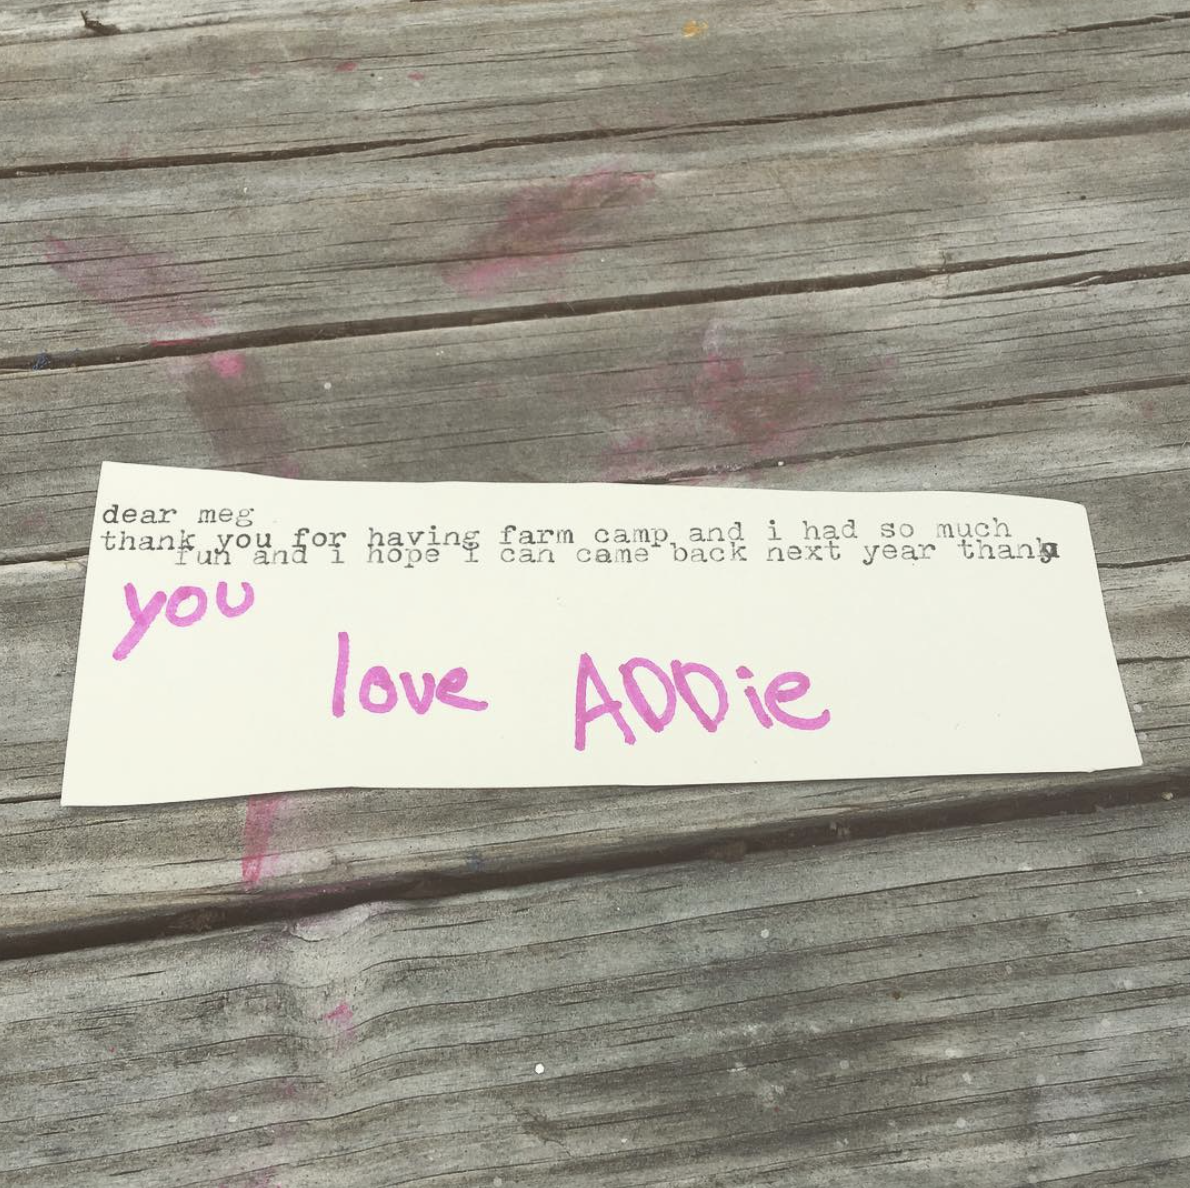 dear meg
thank you for having farm camp and i had so much
fun and i hope i can came back next year thank
you
love ADDie